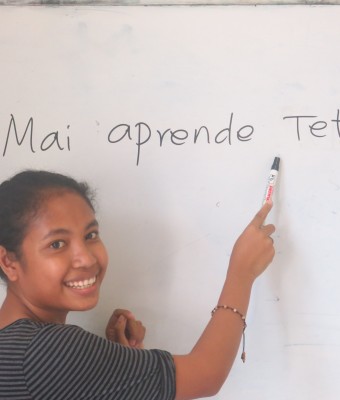 Mai aprende Tet